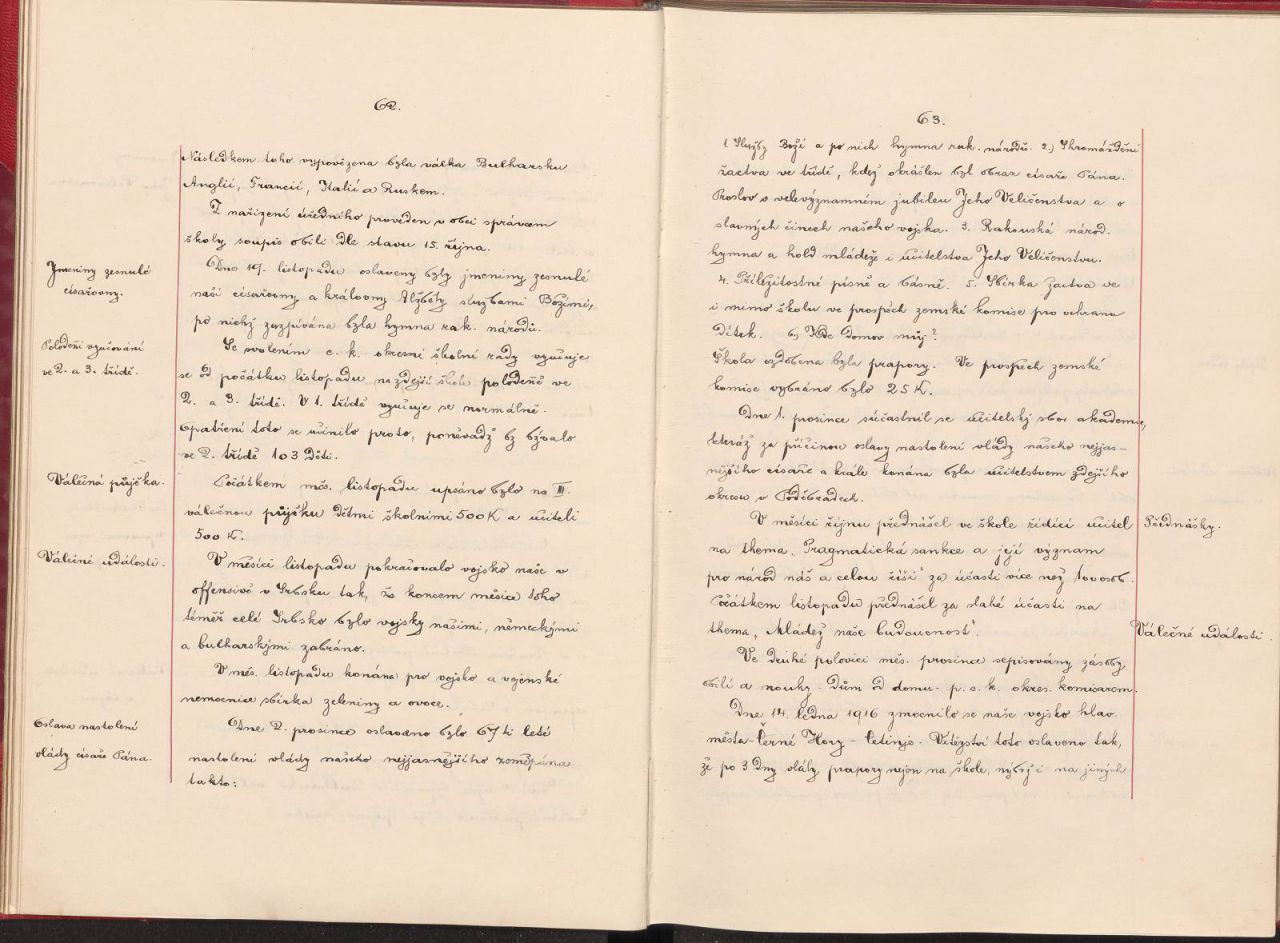 62.
Následkem toho vypovězena byla válka Bulharsku
Anglií, Francií, Italií a Ruskem.
Z nařízení úředního proveden v obci správcem
školy soupis obilí dle stavu 15. října.
Jmeniny zesnulé
císařovny.
Dne 19. listopadu oslaveny byly jmeniny zesnulé
naší císařovny a královny Alžběty službami Božími,
po nichž zazpívána byla hymna rak. národů.
Polodení vyučování
ve 2. a 3. třídě.
Se svolením c. k. okresní školní rady vyučuje
se od počátku listopadu na zdejší škole polodeně ve
2. a 3. třídě. V 1. třídě vyučuje se normálně.
Opatření toto se učinilo proto, poněvadž by bývalo
ve 2. třídě 103 dětí.
Válečná půjčka.
Počátkem měs. listopadu upsáno bylo na III.
válečnou půjčku dětmi školními 500 K a učiteli
500 K.
Válečné události.
V měsíci listopadu pokračovalo vojsko naše v
offensivě v Srbsku tak, že koncem měsíce toho
téměř celé Srbsko bylo vojsky našimi, německými
a bulharskými zabráno.
V měs. listopadu konána pro vojsko a vojenské
nemocnice sbírka zeleniny a ovoce.
Oslava nastolení
vlády císaře Pána.
Dne 2. prosince oslaveno bylo 67 ti leté
nastolení vlády našeho nejjasnějšího zeměpána
takto:
63.
1. Služby Boží a po nich hymna rak. národů. 2.) Shromáždění
žactva ve třídě, kdež okrášlen byl obraz císaře Pána.
Proslov o velevýznamném jubileu Jeho Veličenstva a o
slavných činech našeho vojska. 3. Rakouská národ.
hymna a hold mládeže i učitelstva Jeho Veličenstvu.
4. Příležitostné písně a básně. 5. Sbírka žactva ve
i mimo školu ve prospěch zemské komise pro ochranu
dítek. 6, Kde domov můj?
Škola ozdobena byla prapory. Ve prospěch zemské
komise vybráno bylo 25 K.
Dne 1. prosince súčastnil se učitelský sbor akademie,
kteráž za příčinou oslavy nastolení vlády našeho nejjas-
nějšího císaře a krále konána byla učitelstvem zdejšího
okresu v Poděbradech.
Přednášky.
V měsíci říjnu přednášel ve škole řídící učitel
na thema „Pragmatická sankce a její význam
pro národ náš a celou říši“ za účasti více než 100 osob.
Počátkem listopadu přednášel za slabé účasti na
thema „Mládež naše budoucnost“.
Válečné události.
Ve druhé polovici měs. prosince sepisovány zásoby
obilí a mouky - dům od domu - p. c. k. okres. komisarem.
Dne 14. ledna 1916 zmocnilo se naše vojsko hlav.
města - Černé Hory - Cetinje. Vítězství toto oslaveno tak,
že po 3 dny vlály prapory nejen na škole, nýbrž i na jiných